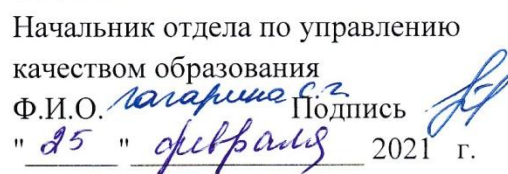 Начальник отдела по управлению
качеством образования
Ф.И.О. Гагарина С.Г. Подпись
" 25 " февраля 2021 г.